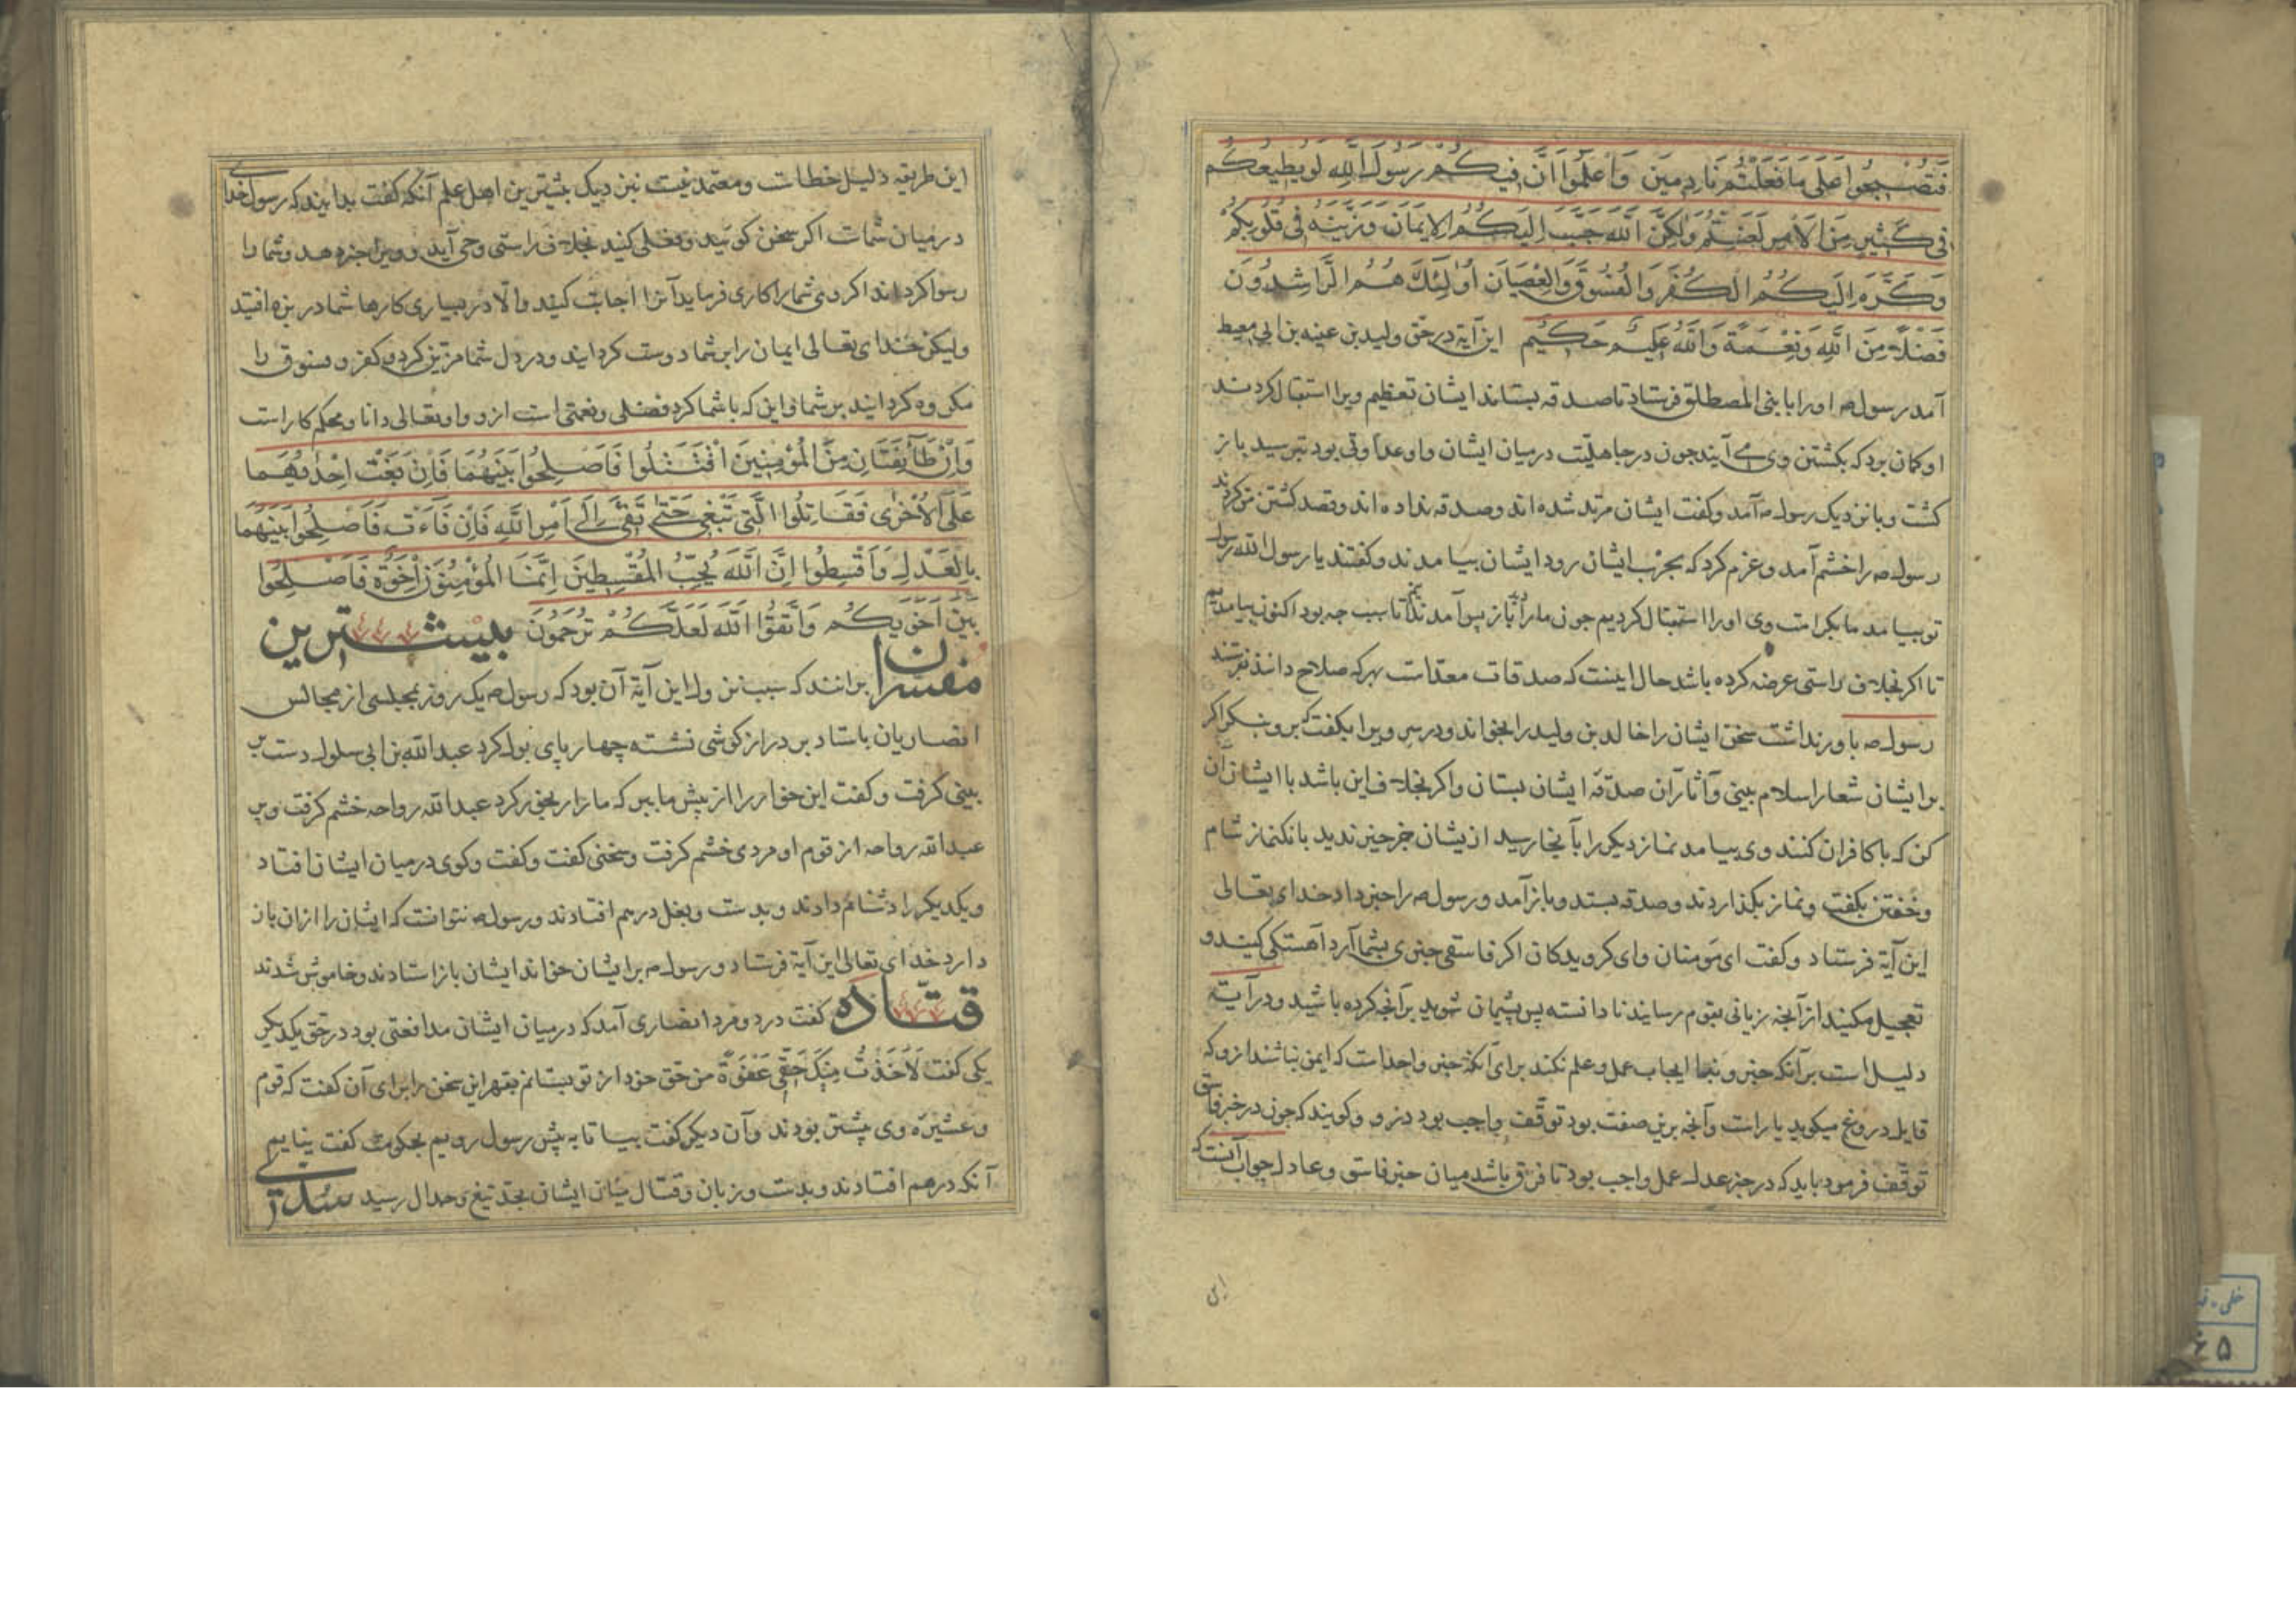 فَتُصْبِحُوا عَلَى مَا فَعَلْتُمْ نَادِمِينَ وَاعْلَمُوا أَنَّ فِيكُمْ رَسُولَ اللَّهِ لَوْ يُطِيعُكُمْ
فِي كَثِيرٍ مِنَ الْأَمْرِ لَعَنِتُّمْ وَلَكِنَّ اللَّهَ حَبَّبَ إِلَيْكُمُ الْإِيمَانَ وَزَيَّنَهُ فِي قُلُوبِكُمْ
وَكَرَّهَ إِلَيْكُمُ الْكُفْرَ وَالْفُسُوقَ وَالْعِصْيَانَ أُولَئِكَ هُمُ الرَّاشِدُونَ
فَضْلًا مِنَ اللَّهِ وَنِعْمَةً وَاللَّهُ عَلِيمٌ حَكِيمٌ این آیة در حق ولید بن عینه بن ابی معیط
آمد رسول صه اورا با بنی المصطلق فرستاد تا صدقه بستاند ایشان تعظیم ویرا استقبال کردند
او کمان برد که بکشتن وی می آیند جون در جاهلیّت درمیان ایشان و او عداوتی بود بترسید باز
کشت و با نزدیک رسول صه آمد و کفت ایشان مرتد شده اند و صدقه نداده اند و قصد کشتن من کردند
رسول صه را خشم آمد و عزم کرد که بحرب ایشان رود ایشان بیامدند و کفتند یا رسول الله رسول
تو بیامد ما بکرامت وی اورا استقبال کردیم جون مارا باز پس آمد تا سبب جه بود اکنون بیامدیم
تا اکر بخلاف راستی عرضه کرده باشد حال اینست که صدقات معدّاست بهر که صلاح داند بفرستد
رسول صه باور نداشت سخن ایشان را خالد بن ولید را بخواند و در سر ویرا بکفت که برو بنکر اکر
بر ایشان شعار اسلام بینی و آثار آن صدقه ایشان بستان و اکر بخلاف این باشد با ایشان آن
کن که با کافران کنند وی بیامد نماز دیکر را بآنجا رسید از یشان جز خیر ندید بانک نماز شام
و خفتن بکفت و نماز بکذاردند و صدقه بستد و باز آمد و رسول صه را خبر داد خدای تعالی
این آیة فرستاد و کفت ای مومنان و ای کرویدکان اکر فاسقی خبری بشما آرد آهستکی کنید و
تعجیل مکنید از آنجه زیانی بقوم رسانید نادانسته پس پشیمان شوید بر آنجه کرده باشید و در آیت
دلیل است بر آنکه خبر و نبا ایجاب عمل و علم نکند برای آنکه خبر واحد است که ایمن نباشند ازو که
قایل دروغ میکوید یا راست و آنجه برین صفت بود توقّف واجب بود درو و کویند که جون در خبر فاسق
توقّف فرمود باید که در خبر عدل عمل واجب بود تا فرق باشد میان خبر فاسق و عادل جواب آنست که
این
این طریقه دلیل خطاست و معتمد نیست نزدیک بیشترین اهل علم آنکه کفت بدانید که رسول خدای
درمیان شماست اکر سخن کوئید و فعلی کنید بخلاف راستی وحی آید و ویرا خبر دهد و شما را
رسوا کرداند اکر وی شمارا کاری فرماید آنرا اجابت کنید و الّا در بسیاری کارها شما در بزه افتید
ولیکن خدای تعالی ایمان را بر شما دوست کردانید و در دل شما مزیّن کرد و کفر و فسوق را
مکروه کردانید بر شما و این که با شما کرد فضلی و نعمتی است ازو و او تعالی دانا و محکم کار است
وَإِنْ طَائِفَتَانِ مِنَ الْمُؤْمِنِينَ اقْتَتَلُوا فَأَصْلِحُوا بَيْنَهُمَا فَإِنْ بَغَتْ إِحْدَاهُمَا
عَلَى الْأُخْرَى فَقَاتِلُوا الَّتِي تَبْغِي حَتَّى تَفِيءَ إِلَى أَمْرِ اللَّهِ فَإِنْ فَاءَتْ فَأَصْلِحُوا بَيْنَهُمَا
بِالْعَدْلِ وَأَقْسِطُوا إِنَّ اللَّهَ يُحِبُّ الْمُقْسِطِينَ إِنَّمَا الْمُؤْمِنُونَ إِخْوَةٌ فَأَصْلِحُوا
بَيْنَ أَخَوَيْكُمْ وَاتَّقُوا اللَّهَ لَعَلَّكُمْ تُرْحَمُونَ بیشترین
مفسران برانند که سبب نزول این آیة آن بود که رسول صه یک روز بمجلسی از مجالس
انصاریان باستاد بر درازکوشی نشسته چهارپای بول کرد عبدالله بن ابی سلول دست بر
بینی کرفت و کفت این خوار را از پیش ما ببر که مارا رنجور کرد عبدالله رواحه خشم کرفت و بر
عبدالله رواحه از قوم او مردی خشم کرفت و سخنی کفت و کفت و کوی درمیان ایشان افتاد
و یکدیکر را دشنام دادند و بدست و بغل درهم افتادند و رسول صه نتوانست که ایشان را ازان باز
دارد خدای تعالی این آیة فرستاد و رسول صه بر ایشان خواند ایشان باز استادند و خاموش شدند
قتاده کفت در دو مرد انصاری آمد که درمیان ایشان مدافعتی بود در حق یکدیکر
یکی کفت لَأَخَذْتُ مِنْكَ حَقِّي عَنْوَةً من حق خود از تو بستانم بقهر این سخن را برای آن کفت که قوم
و عشیرهٔ وی بیشتر بودند و آن دیکر کفت بیا تا به پیش رسول رویم بحکومت کفت نیایم
آنکه درهم افتادند و بدست و زبان و قتال میان ایشان بحدّ تیغ و جدال رسید سُدّی